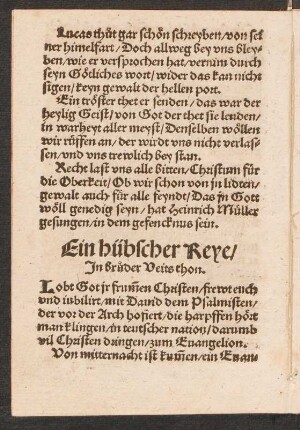 Lucas thůt gar schön schreyben/von sei
ner himelfart/Doch allweg bey vns bley-
ben/wie er versprochen hat/vernim durch
seyn Götliches wort/wider das kan nicht
sigen/keyn gewalt der hellen port.
Ein tröster thet er senden/das war der
heylig Geist/von Got der thet sie lenden/
in warheyt aller meyst/Denselben wöllen
wir rüffen an/der würdt vns nicht verlas-
sen/vnd vns trewlich bey stan.
Recht last vns alle bitten/Christum für
die Oberkeit/Ob wir schon von jn lidten/
gewalt auch für alle feyndt/Das jn Gott
wöll genedig seyn/hat Heinrich Müller
gesungen/in dem gefencknus sein.
Ein hübscher Reye/
In brůder Veits thon.
Lobt Got jr frum̃en Christen/frewt euch
vnd iubilirt/mit Dauid dem Psalmisten/
der vor der Arch hofiert/die harpffen hört
man klingen/in teutscher nation/darumb
vil Christen dringen/zum Euangelion.
Von mitternacht ist kum̃en/ein Euan-